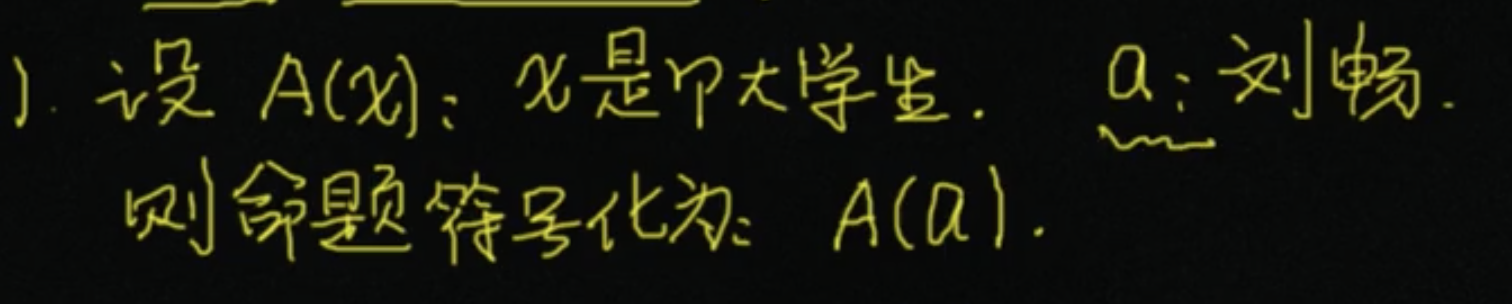 ). 设 A(x): x是个大学生. a: 刘畅.
则命题符号化为: A(a).